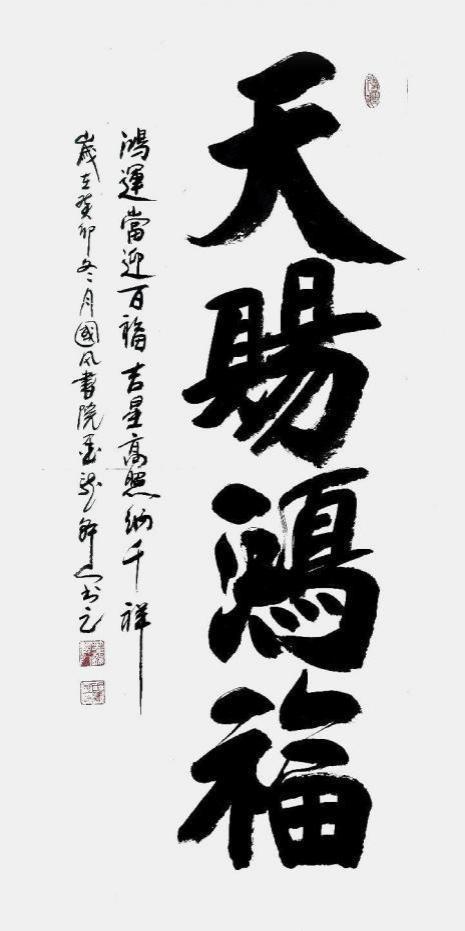 天賜鴻福
鴻運當迎百福吉星高照納千祥
歲在癸卯冬月國風書院